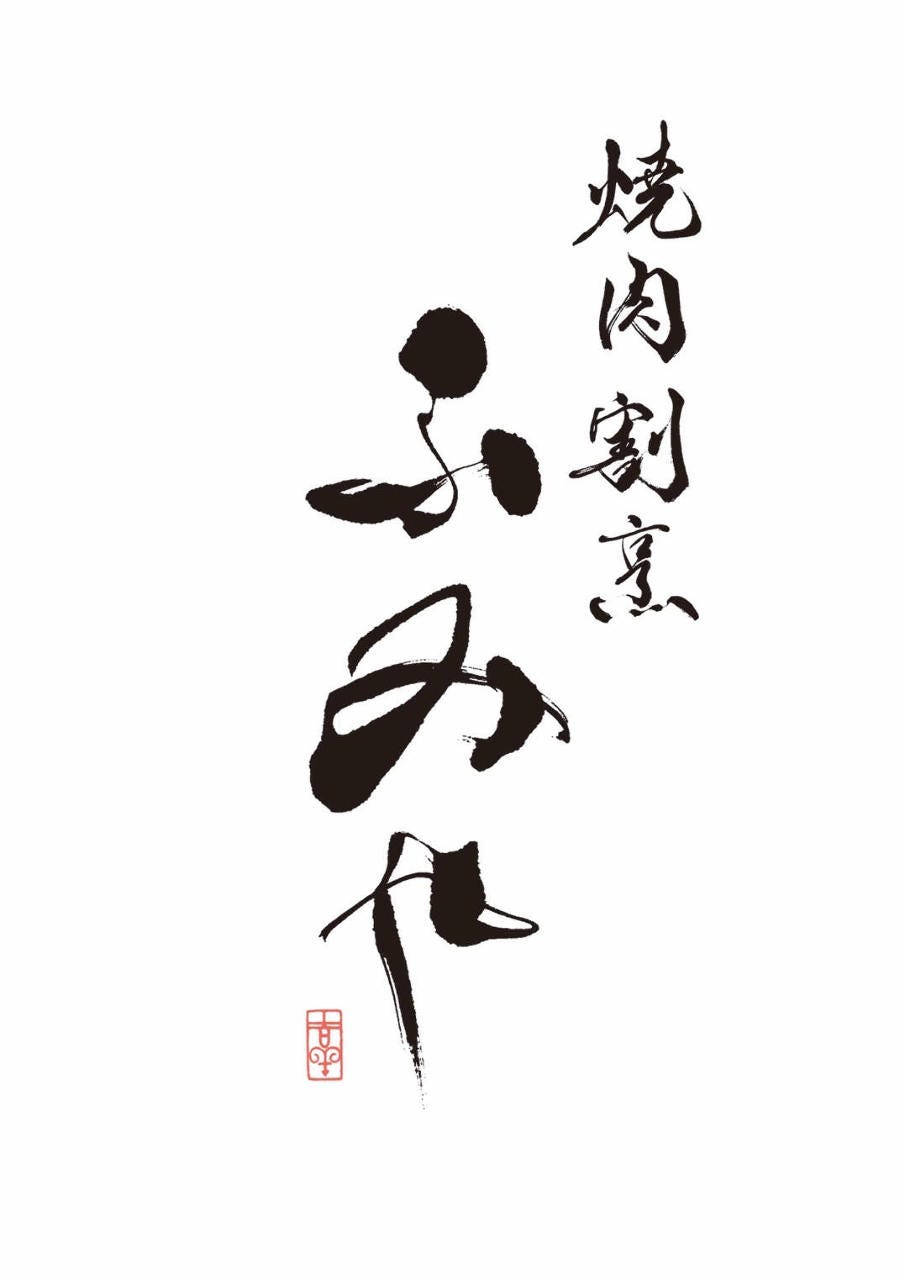 焼肉割烹
ふみや